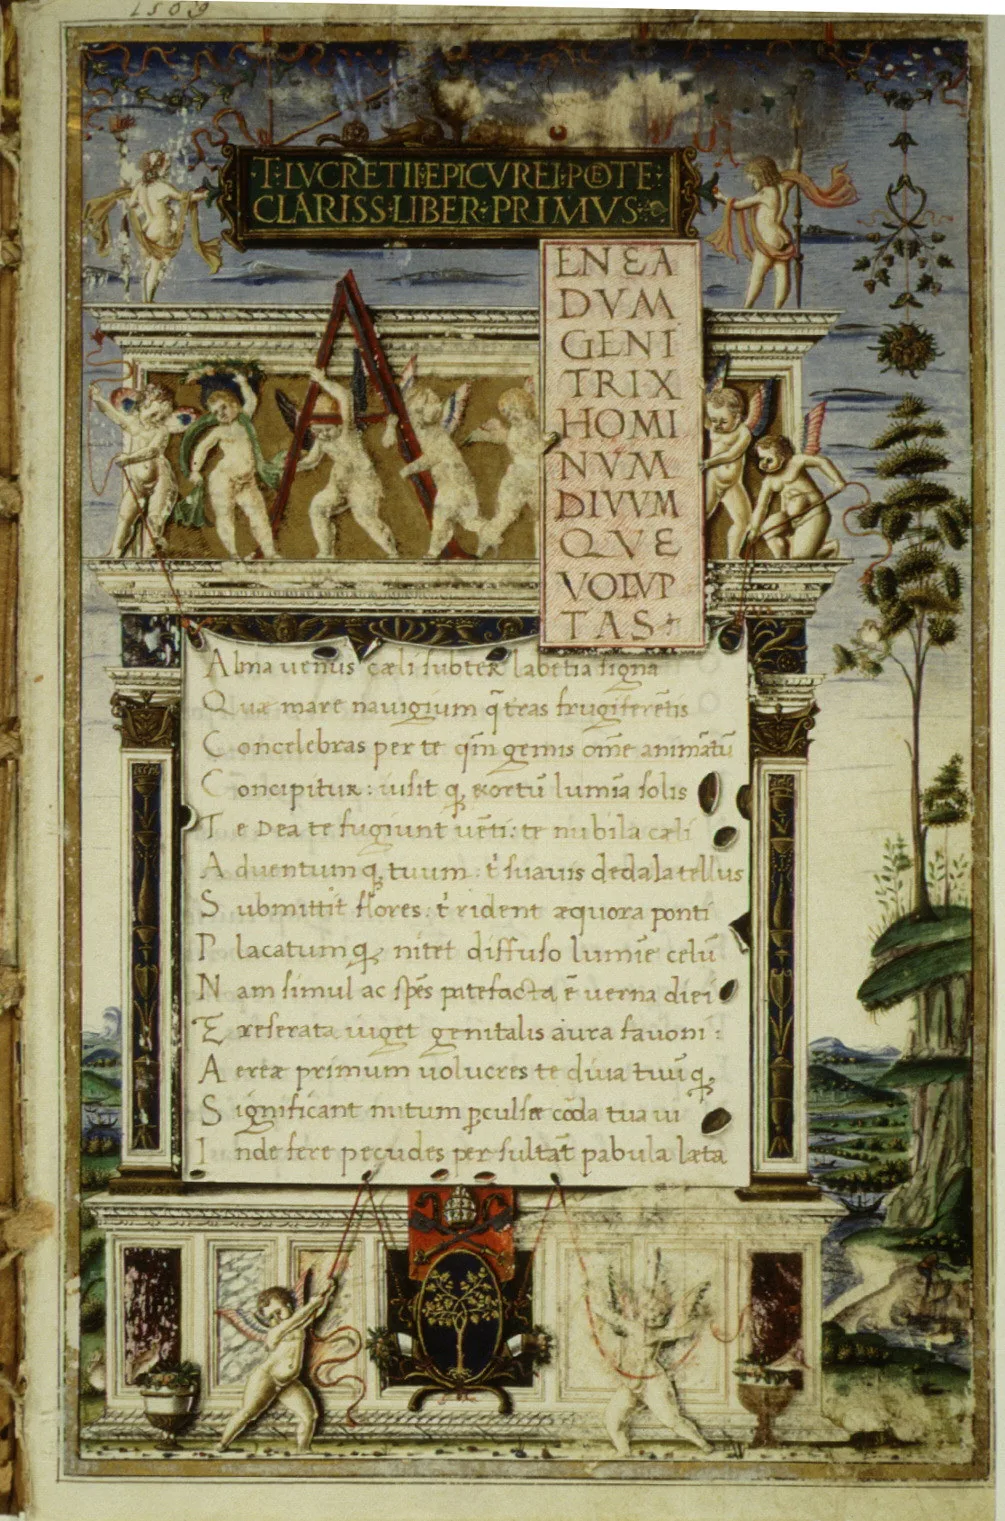 1509
T·LVCRETII·EPICVREI·POETE·
CLARISS·LIBER·PRIMVS·
A
ENEA
DVM
GENI
TRIX
HOMI
NVM
DIVVM
QVE
VOLVP
TAS
Alma uenus cæli subter labētia signa
Quæ mare nauigium q̄ tras frugiferētis
Concelebras per te qm̄ genus om̄e animātū
Concipitur: iusit q; exortū lumīa solis
Te Dea te fugiunt uēti: te nubila cæli
Aduentumq; tuum: t' suauis dedala tellus
Submittit flores: t' rident æquora ponti
Placatumq; nitet diffuso lumīe celū
Nam simul ac spēs patefacta ē uerna diei
E reserata uiget genitalis aura fauoni:
Aereæ primum uolucres te diua tuūq;
Significant initum ꝑculsæ cōda tua ui
Inde fere pecudes per sultāt pabula læta